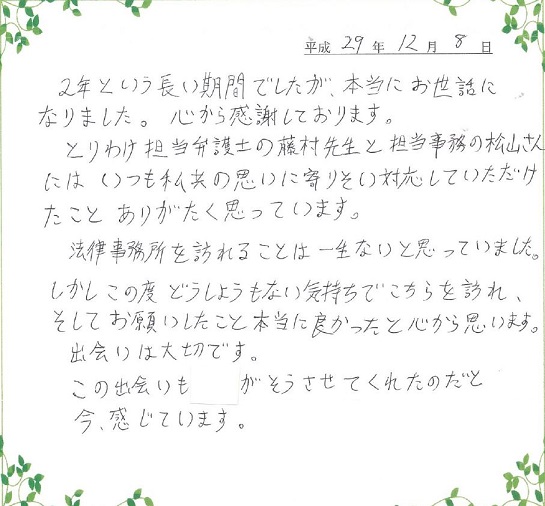 平成 29 年 12 月 8 日
2年という長い期間でしたが、本当にお世話に
なりました。心から感謝しております。
とりわけ担当弁護士の藤村先生と担当事務の松山さん
にはいつも私共の思いに寄りそい対応していただけ
たことありがたく思っています。
法律事務所を訪れることは一生ないと思っていました。
しかしこの度どうしようもない気持ちでこちらを訪れ、
そしてお願いしたこと本当に良かったと心から思います。
出会いは大切です。
この出会いも がそうさせてくれたのだと
今、感じています。